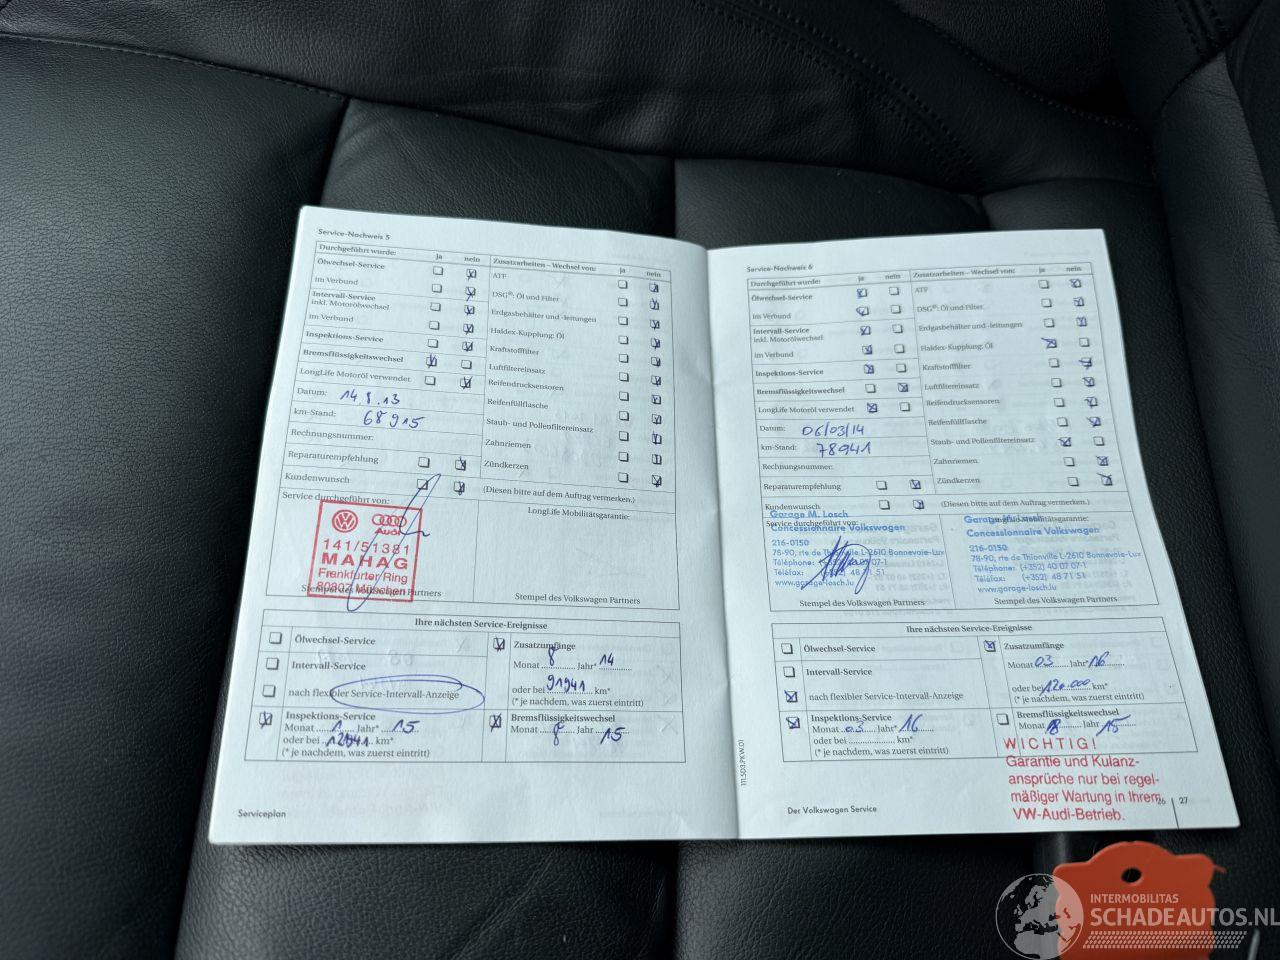 Service-Nachweis 5
Durchgeführt wurde: ja nein
Ölwechsel-Service
im Verbund
Intervall-Service
inkl. Motorölwechsel
im Verbund
Inspektions-Service
Bremsflüssigkeitswechsel
LongLife Motoröl verwendet
Datum: 14.8.13
km-Stand: 68915
Rechnungsnummer:
Reparaturempfehlung
Kundenwunsch
Zusatzarbeiten – Wechsel von: ja nein
ATF
DSG®: Öl und Filter
Erdgasbehälter und -leitungen
Haldex-Kupplung: Öl
Kraftstofffilter
Luftfiltereinsatz
Reifendrucksensoren
Reifenfüllflasche
Staub- und Pollenfiltereinsatz
Zahnriemen
Zündkerzen
(Diesen bitte auf dem Auftrag vermerken.)
Service durchgeführt von:
LongLife Mobilitätsgarantie:
Audi
141/51381
MAHAG
Frankfurter Ring
80807 München
Stempel des Volkswagen Partners
Ihre nächsten Service-Ereignisse
Ölwechsel-Service
Intervall-Service
nach flexibler Service-Intervall-Anzeige
Inspektions-Service
Monat 1 Jahr* 15
oder bei km*
(* je nachdem, was zuerst eintritt)
Zusatzumfänge
Monat 8 Jahr* 14
oder bei 91941 km*
(* je nachdem, was zuerst eintritt)
Bremsflüssigkeitswechsel
Monat 8 Jahr 15
Serviceplan
Service-Nachweis 6
Durchgeführt wurde: ja nein
Ölwechsel-Service
im Verbund
Intervall-Service
inkl. Motorölwechsel
im Verbund
Inspektions-Service
Bremsflüssigkeitswechsel
LongLife Motoröl verwendet
Datum: 06/03/14
km-Stand: 78941
Rechnungsnummer:
Reparaturempfehlung
Kundenwunsch
Zusatzarbeiten – Wechsel von: ja nein
ATF
DSG®: Öl und Filter
Erdgasbehälter und -leitungen
Haldex-Kupplung: Öl
Kraftstofffilter
Luftfiltereinsatz
Reifendrucksensoren
Reifenfüllflasche
Staub- und Pollenfiltereinsatz
Zahnriemen
Zündkerzen
(Diesen bitte auf dem Auftrag vermerken.)
Service durchgeführt von:
Garage M. Losch
Concessionnaire Volkswagen
216-0150
78-90, rte de Thionville L-2610 Bonnevoie-Lux
Téléphone: (+352) 40 07 07-1
Téléfax: (+352) 48 71 51
www.garage-losch.lu
Stempel des Volkswagen Partners
LongLife Mobilitätsgarantie:
Garage M. Losch
Concessionnaire Volkswagen
216-0150
78-90, rte de Thionville L-2610 Bonnevoie-Lux
Téléphone: (+352) 40 07 07-1
Téléfax: (+352) 48 71 51
www.garage-losch.lu
Stempel des Volkswagen Partners
Ihre nächsten Service-Ereignisse
Ölwechsel-Service
Intervall-Service
nach flexibler Service-Intervall-Anzeige
Inspektions-Service
Monat 03 Jahr* 16
oder bei km*
(* je nachdem, was zuerst eintritt)
Zusatzumfänge
Monat 03 Jahr* 16
oder bei 120.000 km*
(* je nachdem, was zuerst eintritt)
Bremsflüssigkeitswechsel
Monat 8 Jahr 15
WICHTIG!
Garantie und Kulanz-
ansprüche nur bei regel-
mäßiger Wartung in Ihrem
VW-Audi-Betrieb.
111.5D3.PKW.01
Der Volkswagen Service
26 | 27
INTERMOBILITAS
SCHADEAUTOS.NL